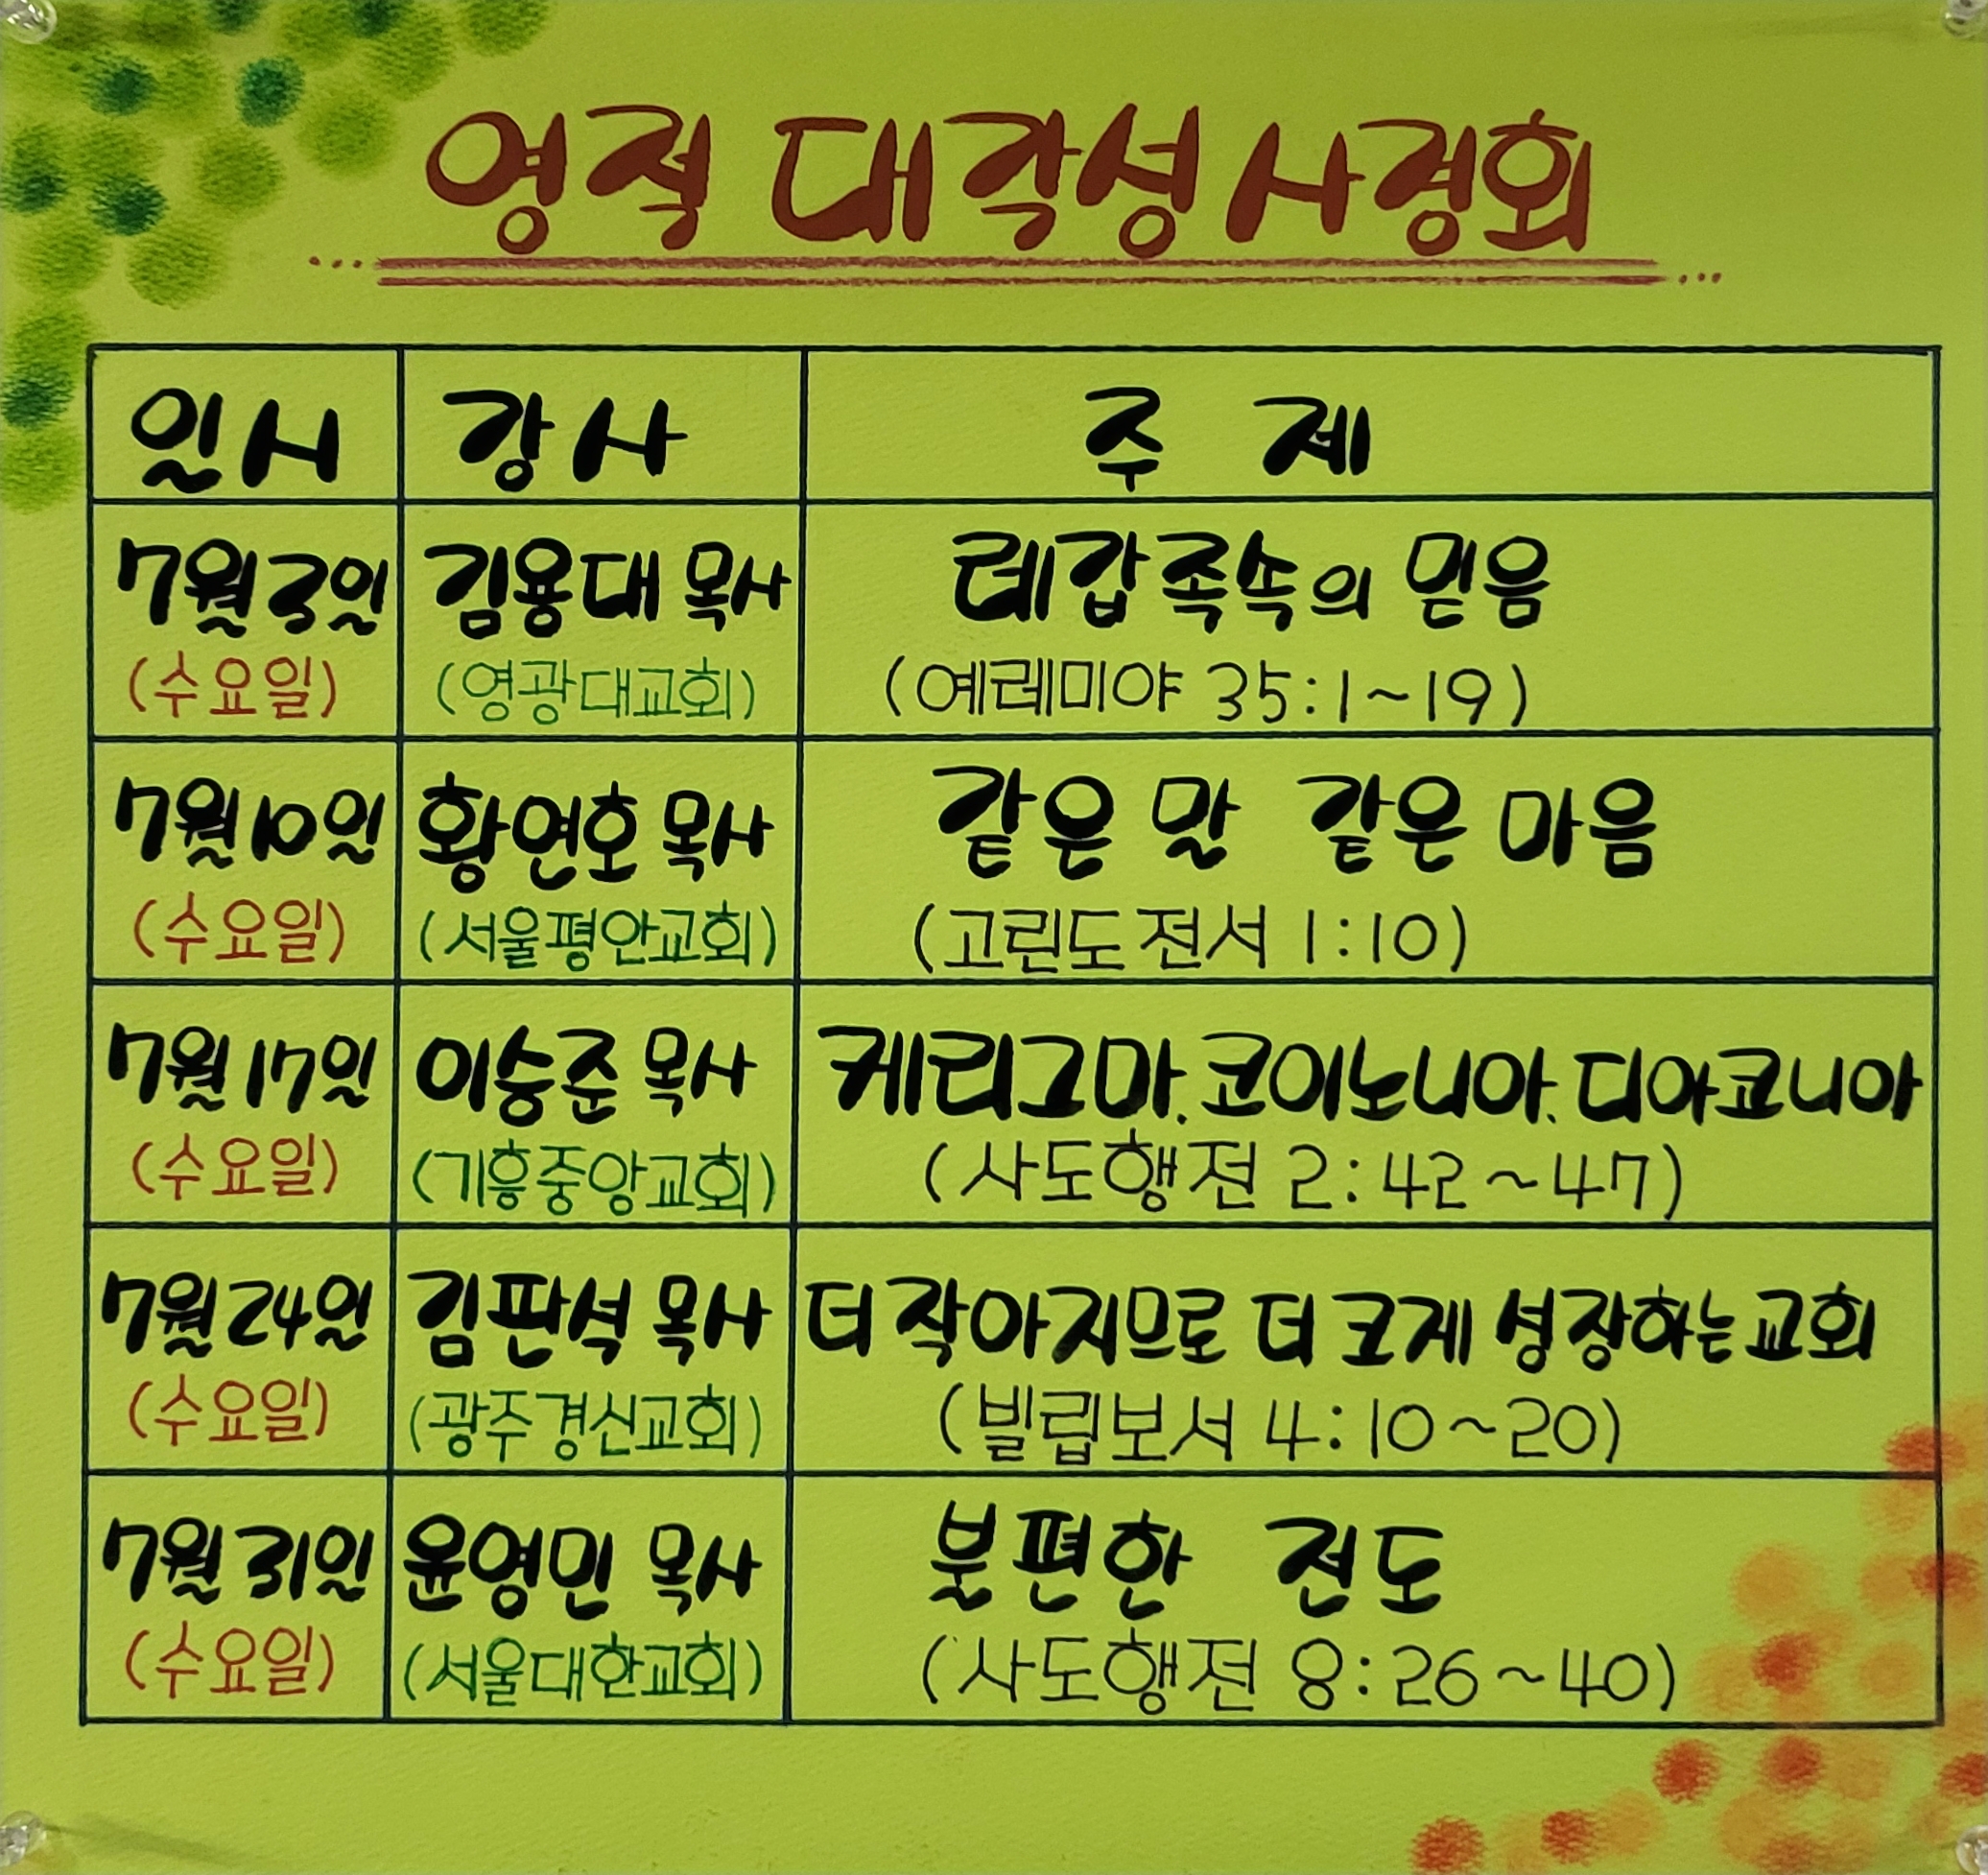 영적 대각성 사경회
일시 강사 주제
7월3일 김용대 목사 레갑족속의 믿음
(수요일) (영광대교회) (예레미야 35:1~19)
7월10일 황연호 목사 같은 말 같은 마음
(수요일) (서울평안교회) (고린도전서 1:10)
7월17일 이승준 목사 케리그마. 코이노니아. 디아코니아
(수요일) (기흥중앙교회) (사도행전 2:42~47)
7월24일 김판석 목사 더 작아지므로 더 크게 성장하는 교회
(수요일) (광주경신교회) (빌립보서 4:10~20)
7월31일 윤영민 목사 불편한 전도
(수요일) (서울대한교회) (사도행전 8:26~40)